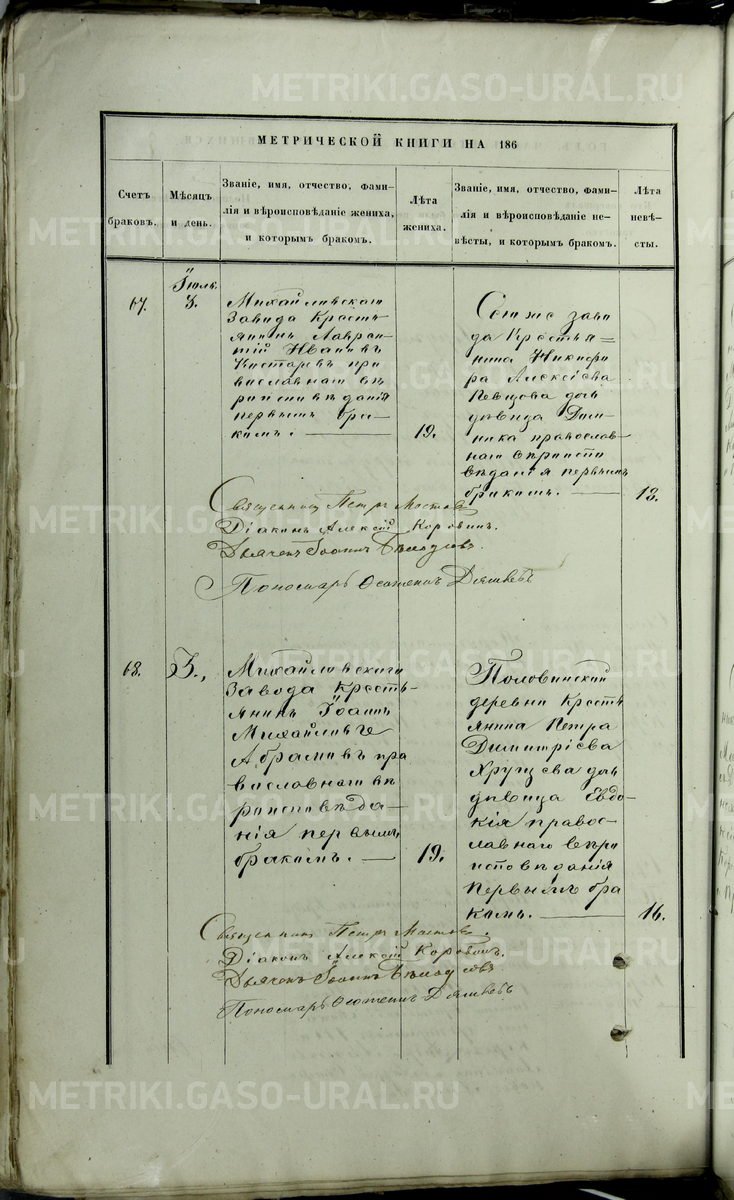 МЕТРИЧЕСКОЙ КНИГИ НА 186
Счетъ
браковъ.
Мѣсяцъ
и день.
Званіе, имя, отчество, фами-
лія и вѣроисповѣданіе жениха,
и которымъ бракомъ.
Лѣта
жениха.
Званіе, имя, отчество, фами-
лія и вѣроисповѣданіе не-
вѣсты, и которымъ бракомъ.
Лѣта
невѣ-
сты.
67.
Іюль
3.
Михайловскаго
Завода Кресть-
янинъ Лаврен-
тій Ивановъ
пра
вославнаго вѣ
роисповѣданія
первымъ бра-
комъ.
19.
Сегоже заво
да Крестья=
нина Никифо
ра Алексѣева
Певцова дочь
дѣвица Дом-
ника православ-
наго вѣроиспо
вѣданія первымъ
бракомъ.
18.
Священникъ Петръ
Діаконъ Алексій Коровинъ.
Дьячекъ Іоаннъ
Пономарь
68.
3.,
Михайловскаго
Завода Кресть-
янинъ Іоаннъ
Михайловъ
Абрамовъ пра
вославнаго вѣ
роисповѣда-
нія первымъ
бракомъ.
19.
Половинской
деревни Кресть
янина Петра
Димитріева
Хрущева дочь
дѣвица Евдо-
кія право-
славнаго вѣро
исповѣданія
первымъ бра
комъ.
16.
Священникъ Петръ
Діаконъ Алексій Коровинъ.
Дьячекъ Іоаннъ
Пономарь
METRIKI.GASO-URAL.RU